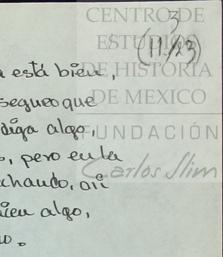 CENTRO DE
ESTUDIOS
DE HISTORIA
DE MEXICO
FUNDACIÓN
Carlos Slim
3
(11/23)
está bien,
seguro que
diga algo,
pero en la
chando, ni
algo,